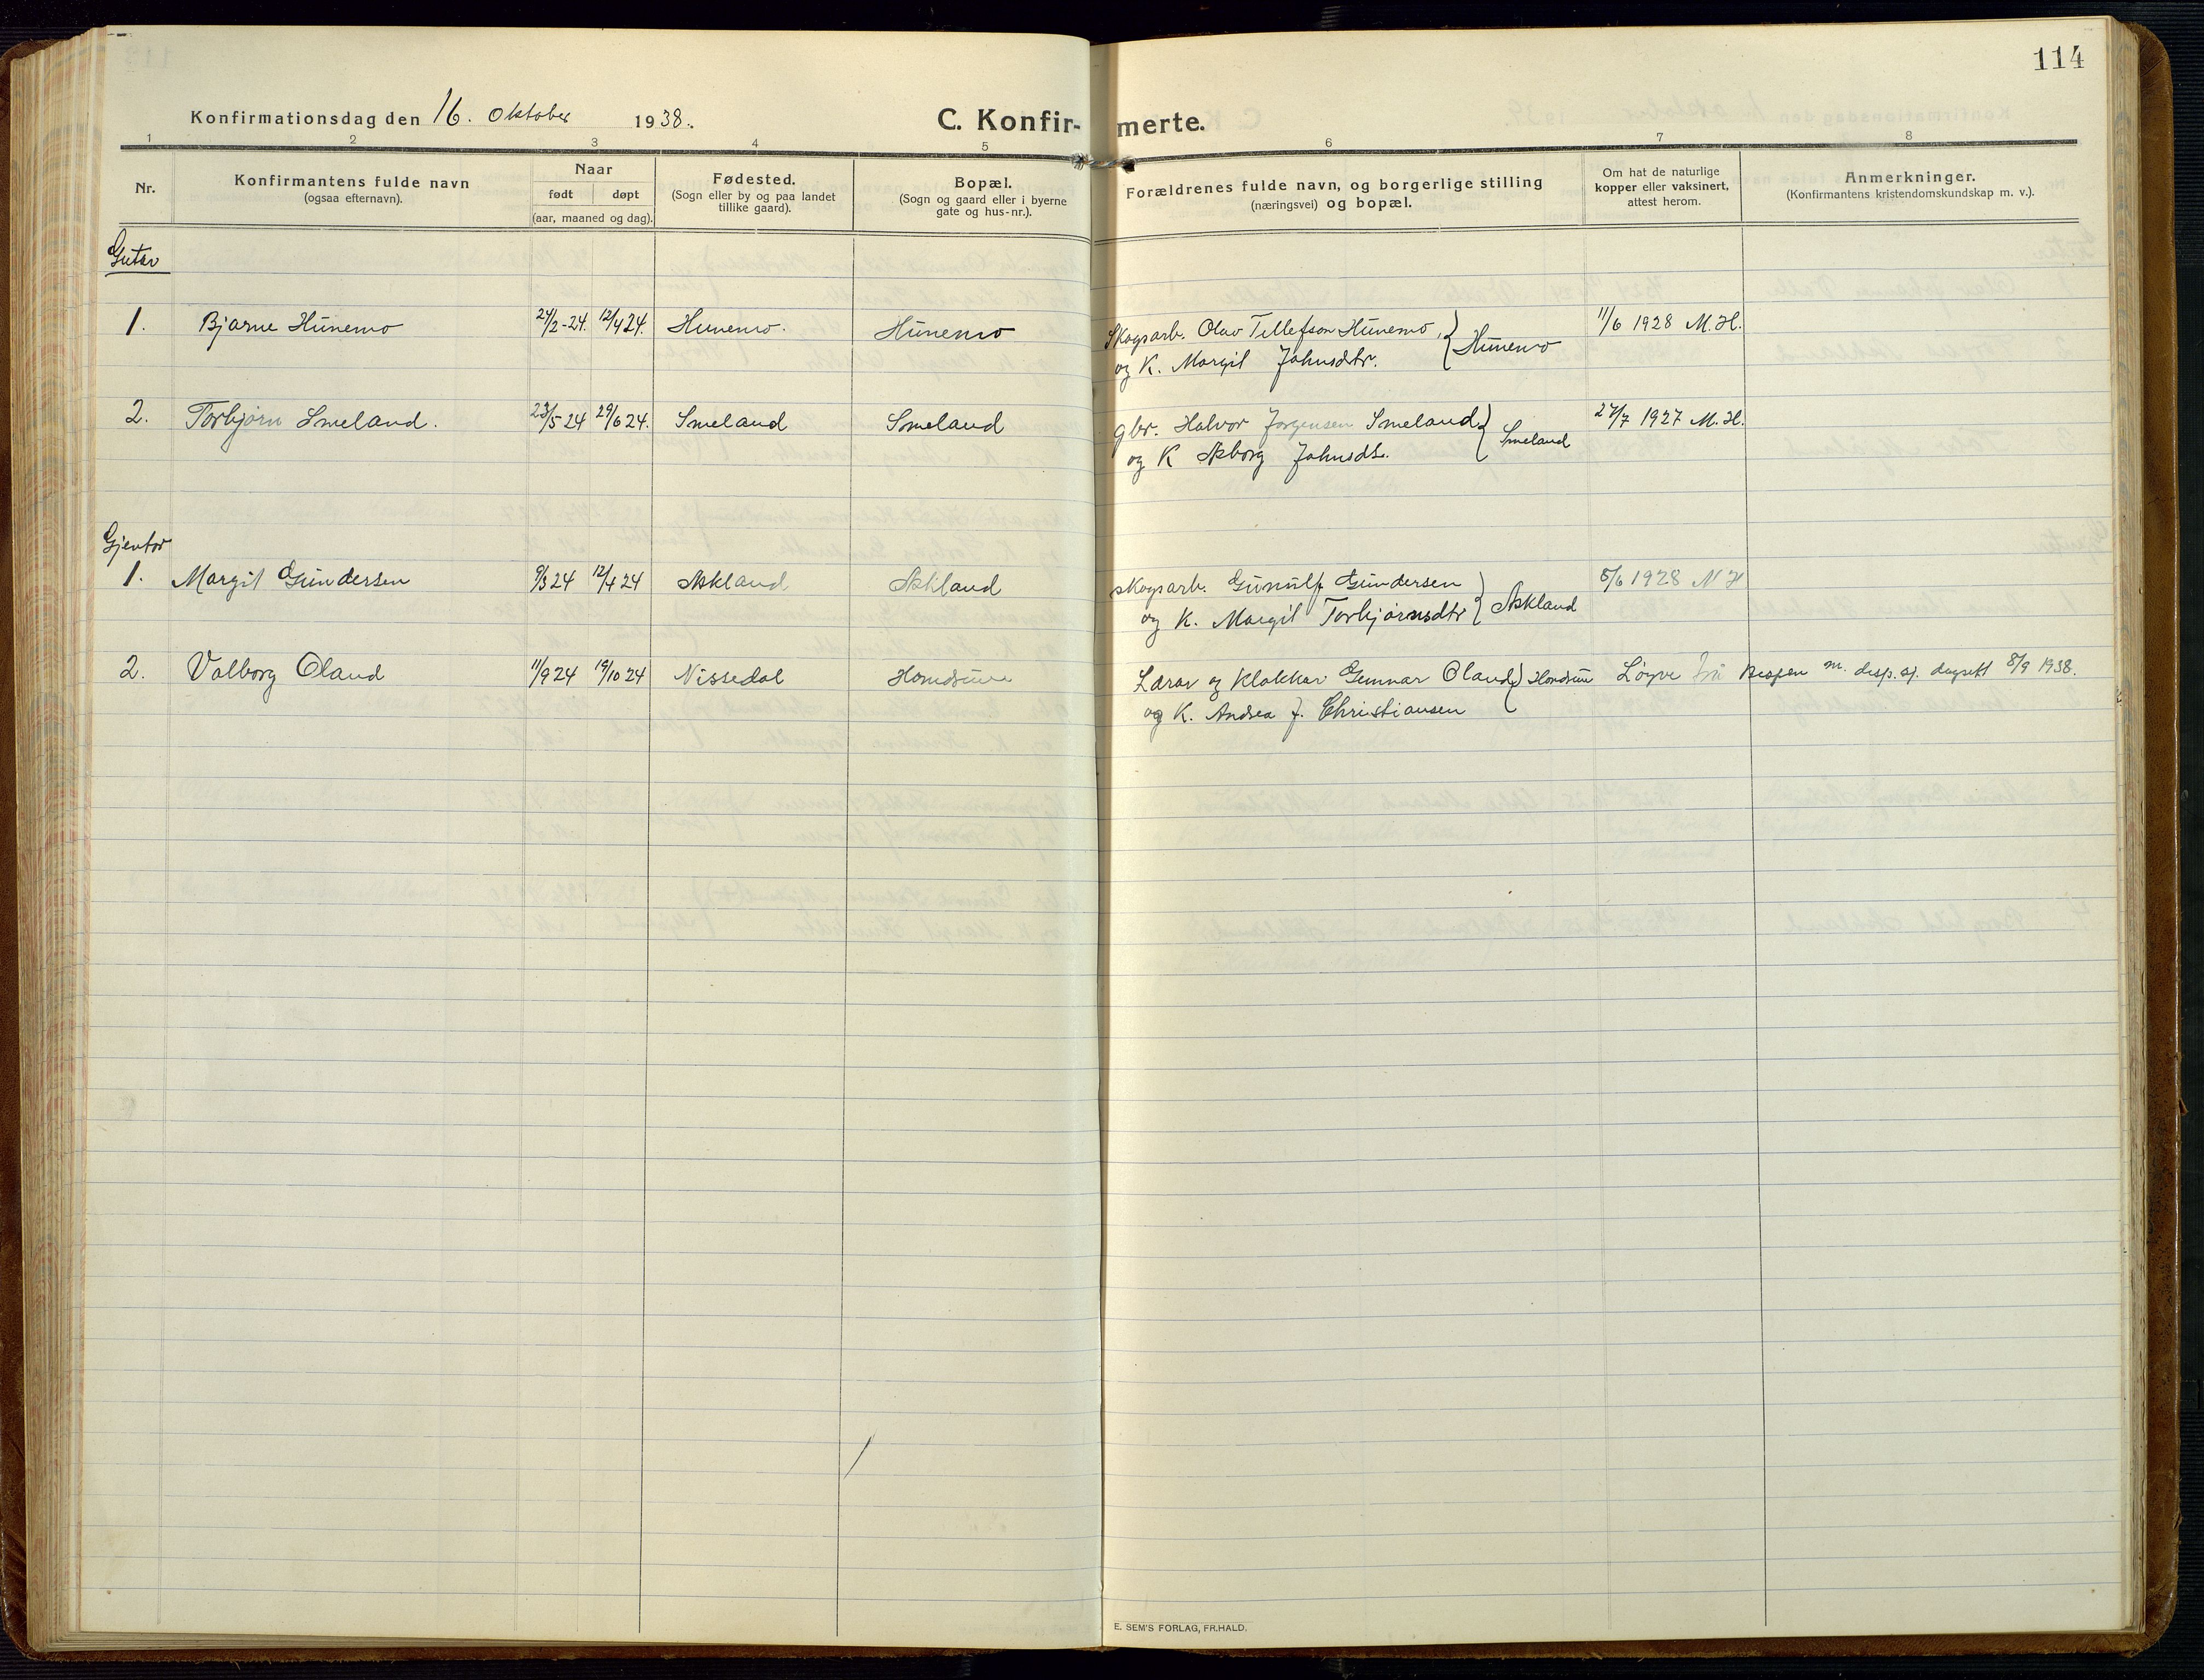 114
Konfirmationsdag den 16. Oktober 1938.
C. Konfirmerte.
1 2 3 4 5 6 7 8
Nr.
Konfirmantens fulde navn
(ogsaa efternavn).
Naar
født døpt
(aar, maaned og dag).
Fødested.
(Sogn eller by og paa landet
tillike gaard).
Bopæl.
(Sogn og gaard eller i byerne
gate og hus-nr.).
Forældrenes fulde navn, og borgerlige stilling
(næringsvei) og bopæl.
Om hat de naturlige
kopper eller vaksinert,
attest herom.
Anmerkninger.
(Konfirmantens kristendomskundskap m. v.).
Gutar
1. Bjarne Hunemo 24/2-24. 12/4 24. Hunemo. Hunemo Skogsarb. Olav Tellefson Hunemo, } Hunemo 11/6 1928 M. H.
og K. Margit Johnsdtr.
2. Torbjørn Smeland. 23/5 24 29/6 24. Smeland Smeland gbr. Halvor Jørgensen Smeland } Smeland 27/7 1927 M. H.
og K Asborg Johnsdt.
Gjentor
1. Margit Gundersen 9/3 24 12/4 24 Askland Askland Skogsarb. Gunulf Gundersen } Askland 8/6 1928 M H
og K. Margit Torbjørnsdtr
2. Valborg Oland 11/9 24 19/10 24 Nissedal Homdrum Lærar og Klokkar Gunnar Oland } Homdrum Løyve frå Bispen m. desp. dagsett 8/9 1938.
og K. Andrea J. Christiansen
E. SEM'S FORLAG, FR.HALD.